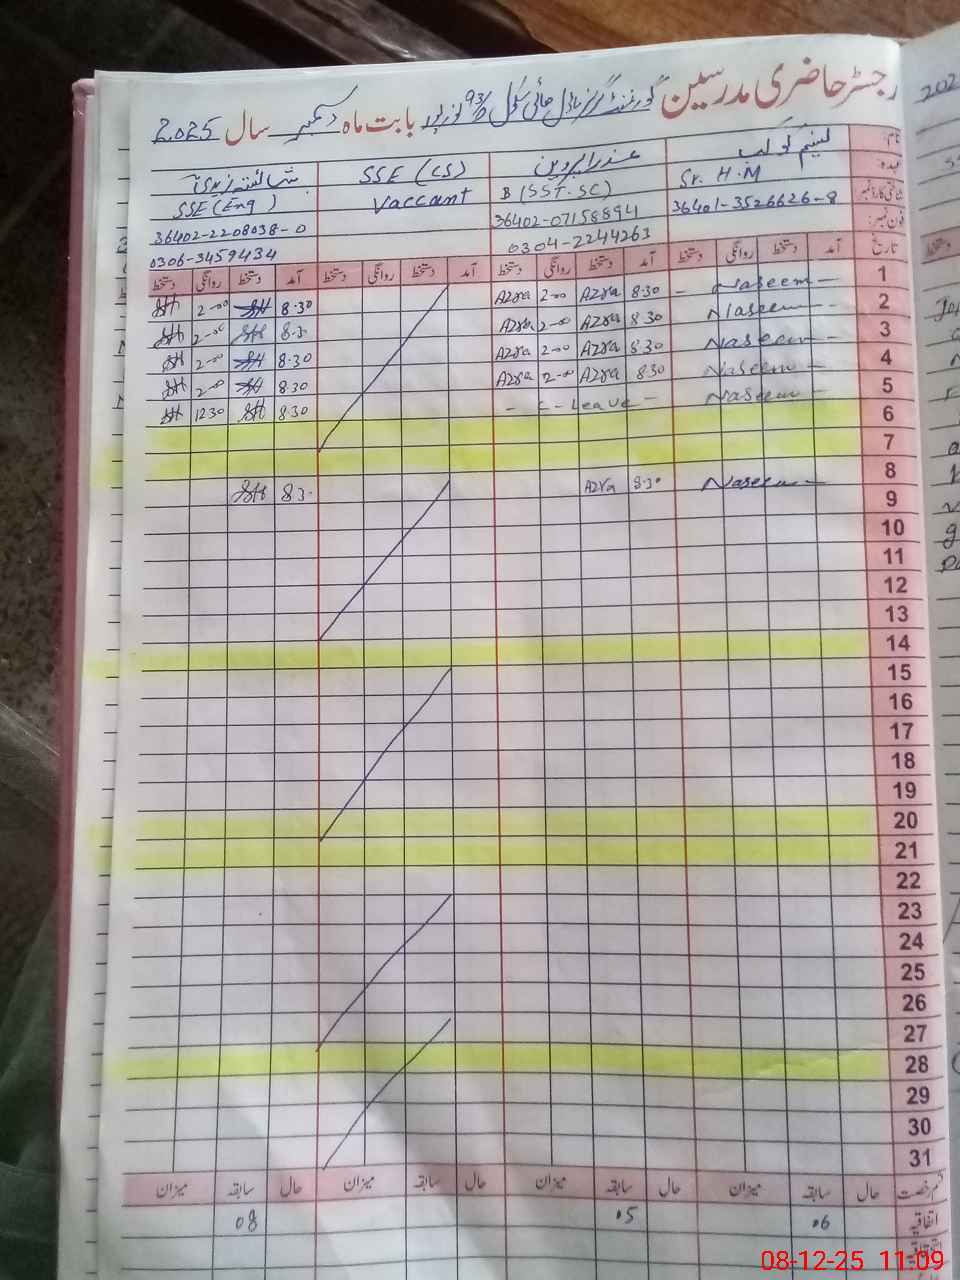 رجسٹر حاضری مدرسین گورنمنٹ گرلز ماڈل ہائی سکول 93/ نورپور بابت ماہ دسمبر سال 2025
نام:
نسیم کوکب
عذرا پروین
SSE (CS)
عہدہ:
Sr. H.M
B (SST.SC)
Vaccant
SSE (Eng)
شناختی کارڈ نمبر:
36401-3526626-8
36402-07158894
36402-2208038-0
فون نمبر:
0304-2244263
0306-3459434
تاریخ آمد دستخط روانگی دستخط آمد دستخط روانگی دستخط آمد دستخط روانگی دستخط آمد دستخط روانگی دستخط
1 - Naseem - 8.30 Azra 2-00 Azra 8.30 SH 2-00 SH
2 Naseem - 8.30 Azra 2-00 Azra 8.3 SH 2-00 SH
3 Naseem - 8.30 Azra 2-00 Azra 8.30 SH 2-00 SH
4 Naseem - 8.30 Azra 2-00 Azra 8.30 SH 2-00 SH
5 Naseem - - Leave - 8.30 SH 12.30 SH
6
7
8 Naseem - 8.30 Azra 8.30 SH
9
10
11
12
13
14
15
16
17
18
19
20
21
22
23
24
25
26
27
28
29
30
31
قسم رخصت حال سابقہ میزان حال سابقہ میزان حال سابقہ میزان حال سابقہ میزان
اتفاقیہ 06 05 08
08-12-25 11:09